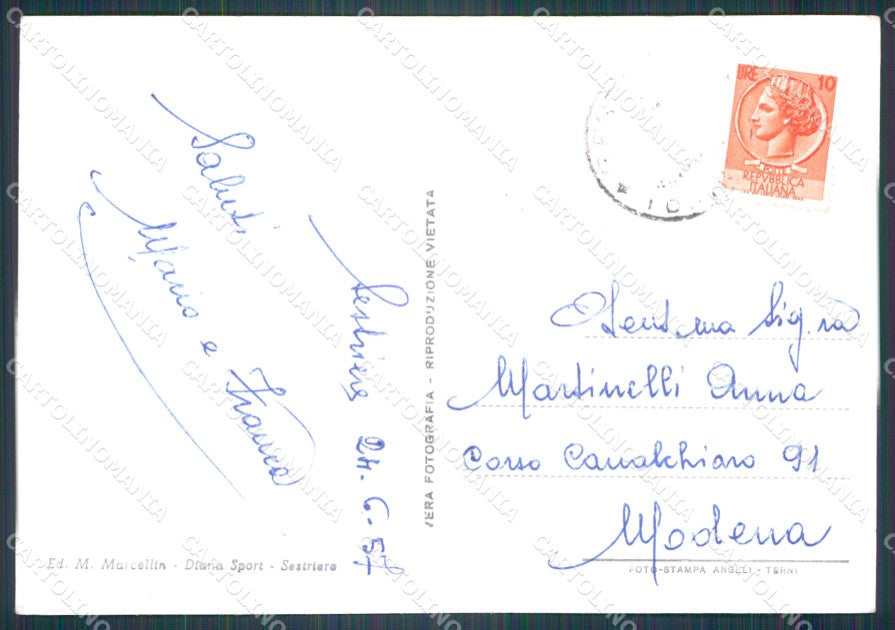 Saluti
Mario e Franca
Sestriere 24-6-57
VERA FOTOGRAFIA - RIPRODUZIONE VIETATA
Ed. M. Marcellin - Diana Sport - Sestriere
LIRE 10
REPVBBLICA
ITALIANA
Sig.ra
Martinelli Anna
Corso Canalchiaro 91
Modena
FOTO-STAMPA ANGELI - TERNI
CARTOLINOMANIA